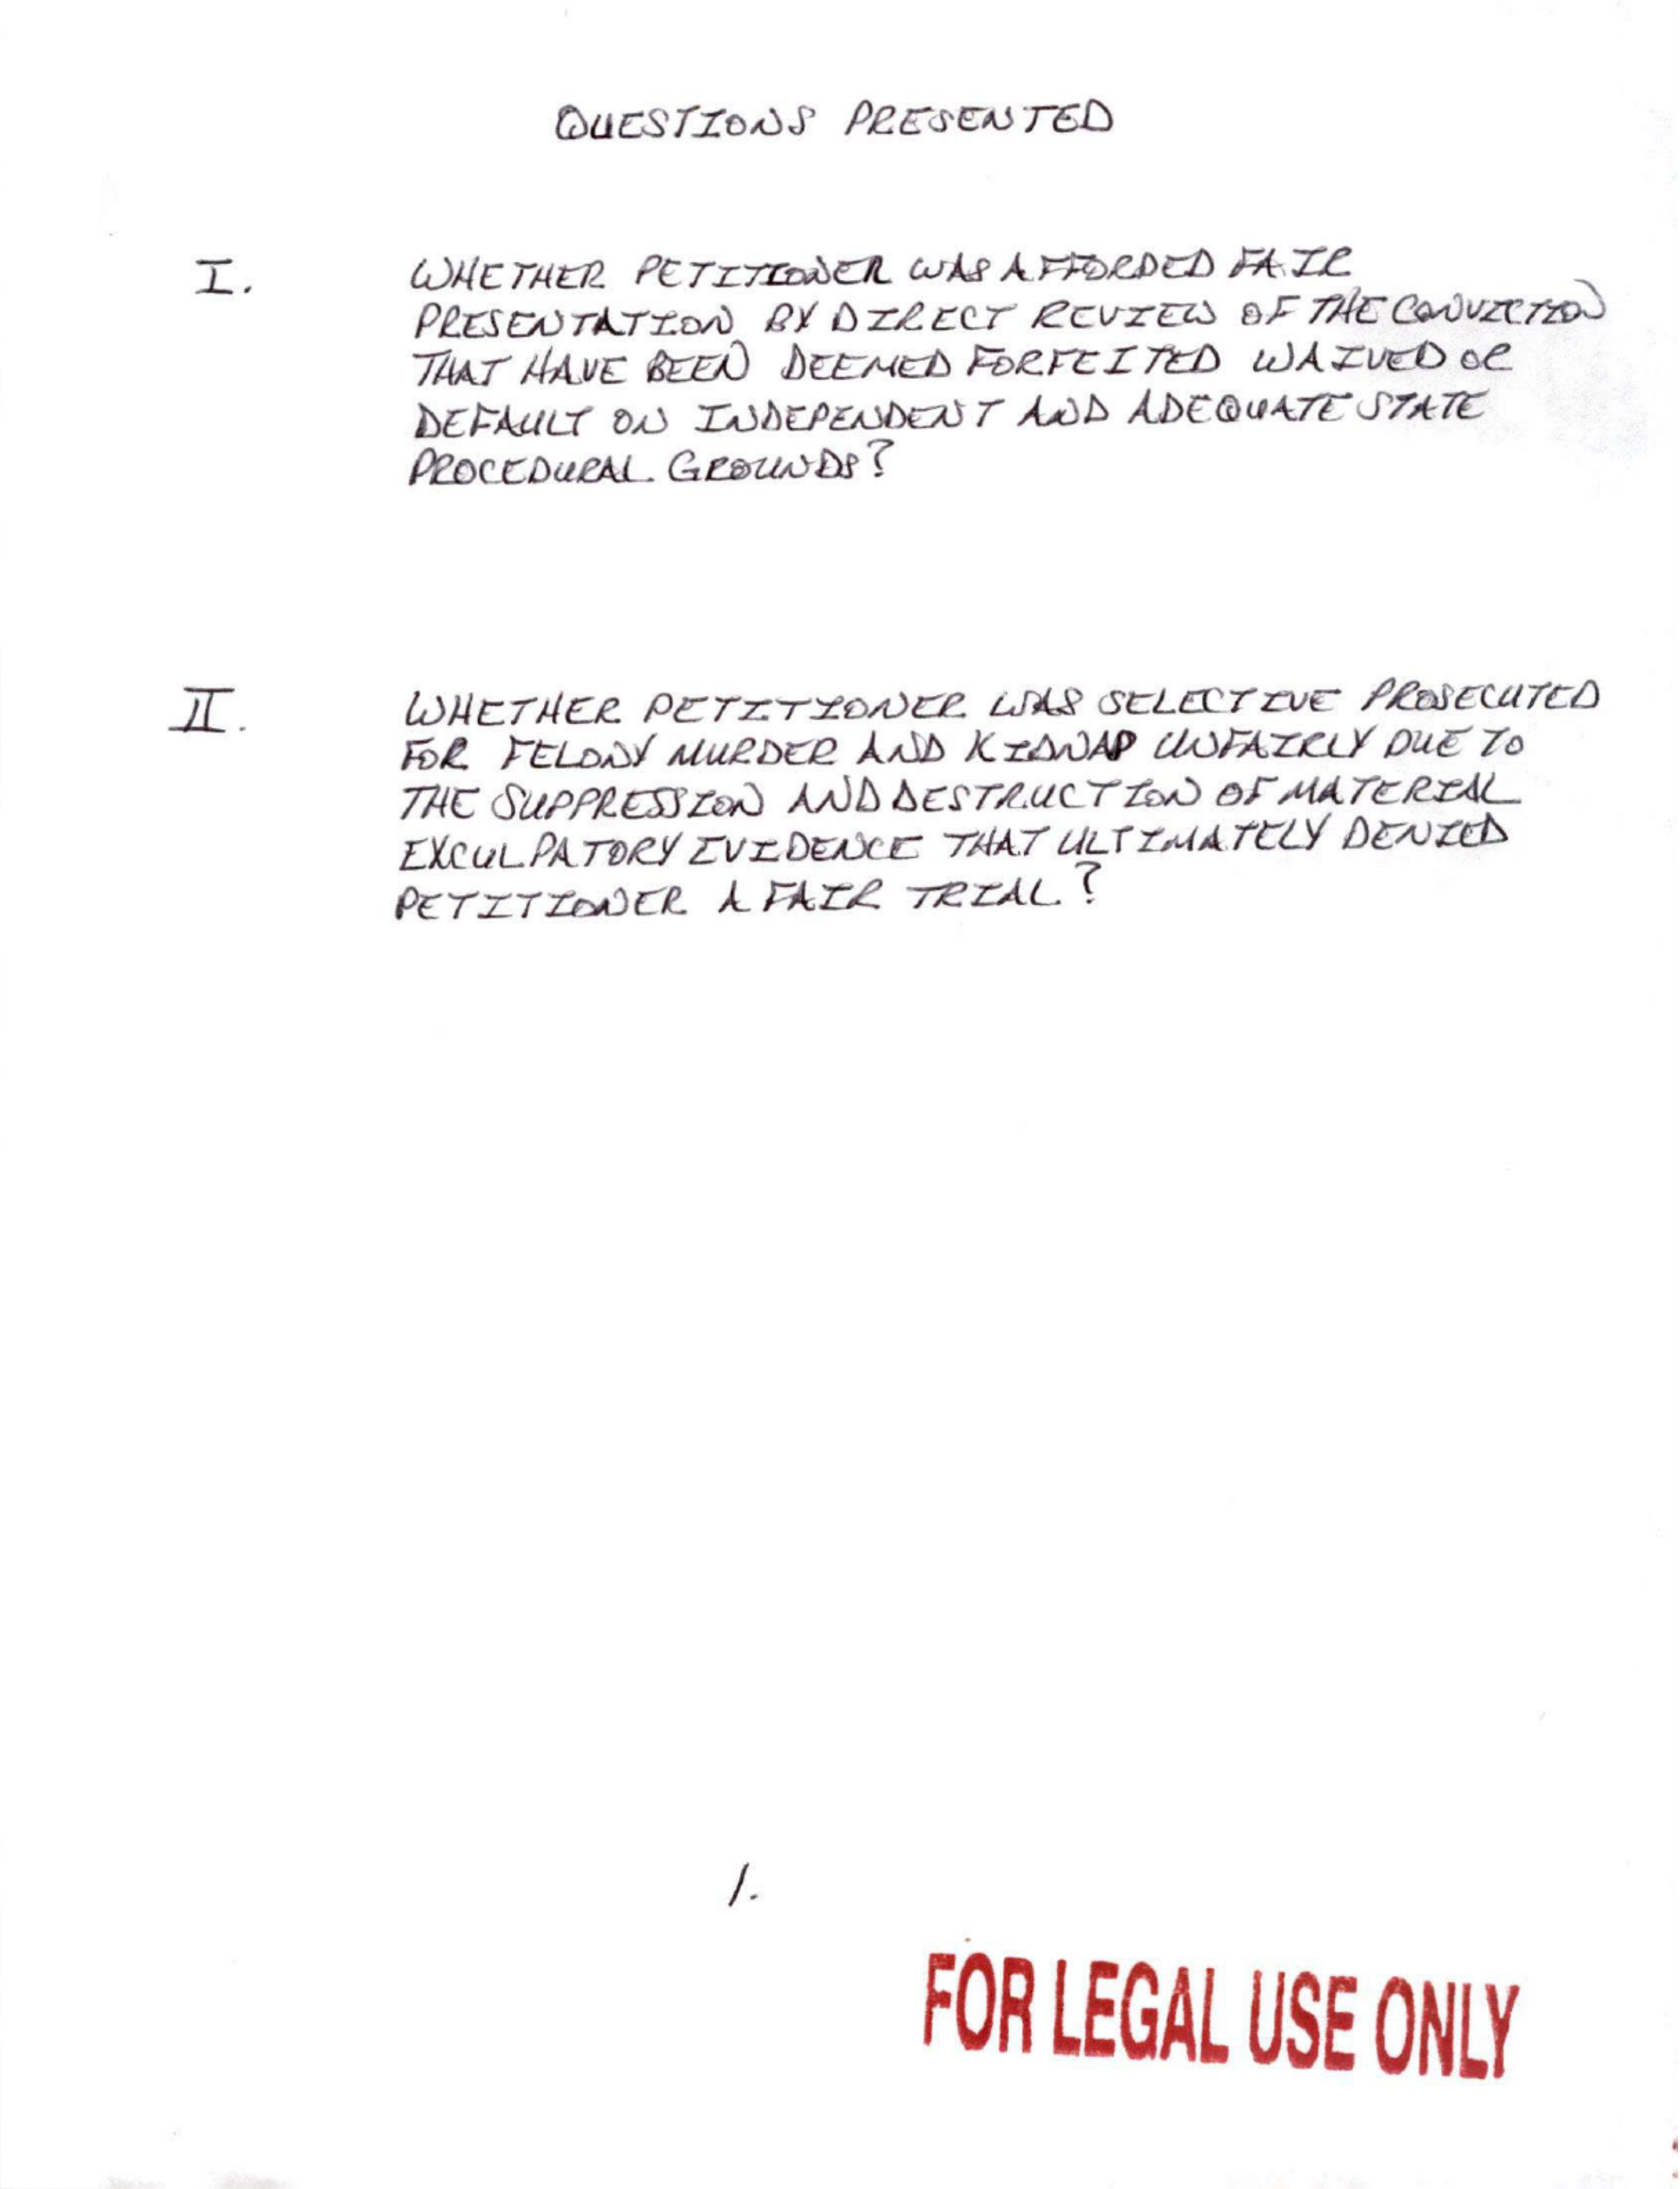 QUESTIONS PRESENTED
I. WHETHER PETITIONER WAS AFFORDED FAIR
PRESENTATION BY DIRECT REVIEW OF THE CONVICTION
THAT HAVE BEEN DEEMED FORFEITED WAIVED OR
DEFAULT ON INDEPENDENT AND ADEQUATE STATE
PROCEDURAL GROUNDS?
II. WHETHER PETITIONER WAS SELECTIVE PROSECUTED
FOR FELONY MURDER AND KIDNAP UNFAIRLY DUE TO
THE SUPPRESSION AND DESTRUCTION OF MATERIAL
EXCULPATORY EVIDENCE THAT ULTIMATELY DENIED
PETITIONER A FAIR TRIAL?
1.
FOR LEGAL USE ONLY